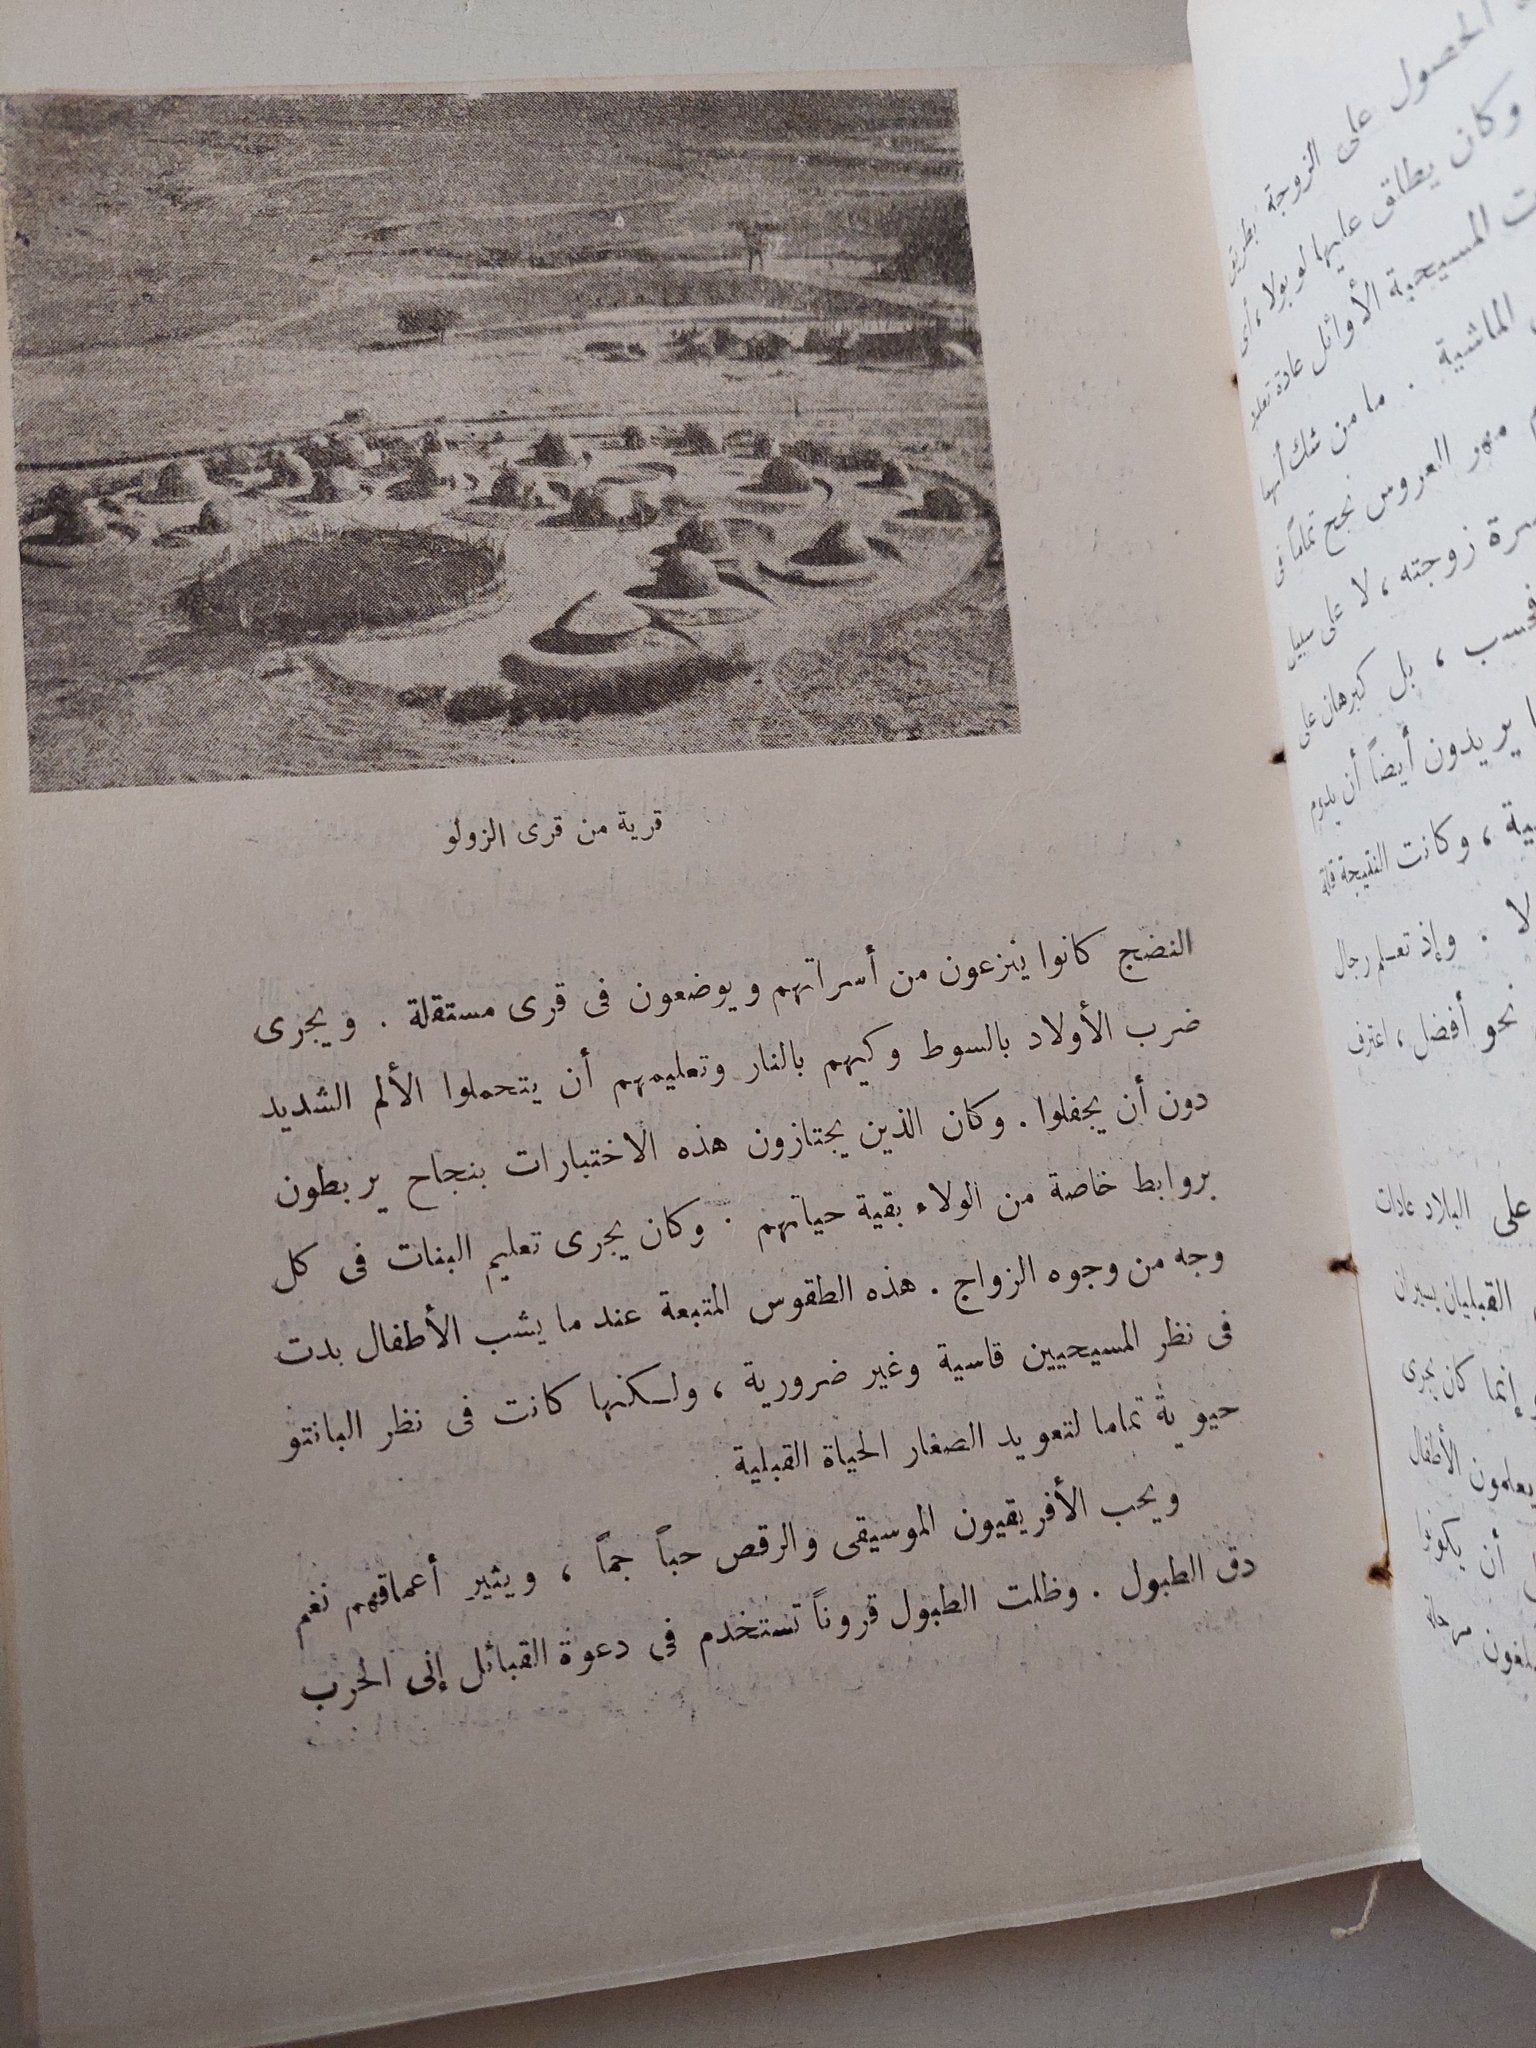 الحصول على الزوجة بطريق
وكان يطلق عليها لوبولا، أى
المسيحية الأوائل عادة
الماشية . ما من شك أنها
مهر العروس نجح تماماً فى
زوجته ، لا على سبيل
فحسب ، بل كبرهان على
يريدون أيضاً أن يدوم
، وكانت النتيجة قلة
لا . وإذ تعلم رجال
نحو أفضل ، اعترف
على البلاد عادات
القبليان يسيران
إنما كان يجرى
يعلمون الأطفال
أن يكونوا
مرحلة
قرية من قرى الزولو
النضج كانوا ينزعون من أسراتهم ويوضعون فى قرى مستقلة . ويجرى
ضرب الأولاد بالسوط وكيهم بالنار وتعليمهم أن يتحملوا الألم الشديد
دون أن يجفلوا . وكان الذين يجتازون هذه الاختبارات بنجاح يربطون
بروابط خاصة من الولاء بقية حياتهم . وكان يجرى تعليم البنات فى كل
وجه من وجوه الزواج . هذه الطقوس المتبعة عند ما يشب الأطفال بدت
فى نظر المسيحيين قاسية وغير ضرورية ، ولكنها كانت فى نظر البانتو
حيوية تماما لتعويد الصغار الحياة القبلية
ويحب الأفريقيون الموسيقى والرقص حباً جماً ، ويثير أعماقهم نغم
دق الطبول . وظلت الطبول قروناً تستخدم فى دعوة القبائل إلى الحرب